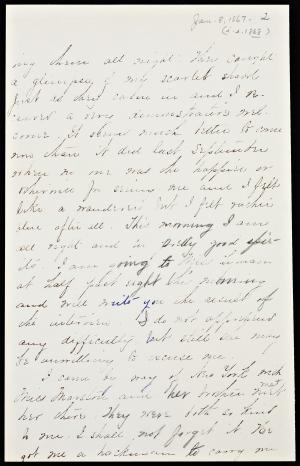 Jan. 8, 1867. 2
(d. s. 1868)
my throne all right. They caught
a glimpse of my scarlet shawl
just as they came in and I re-
ceived a very demonstrative wel-
come. It seems much better to come
now than it did last September
when no one was the happier or
otherwise for seeing me and I felt
like a wanderer but I felt richer
else after all. This morning I am
all right and in very good spir-
its. I am going to
at half past eight this morning
and will write you the result of
the interview. I do not apprehend
any difficulty but still she may
be unwilling to excuse me.
I came by way of New York with
Miss and her brother met
her there. They were both so kind
to me. I shall not forget it. He
got me a hackman to carry me